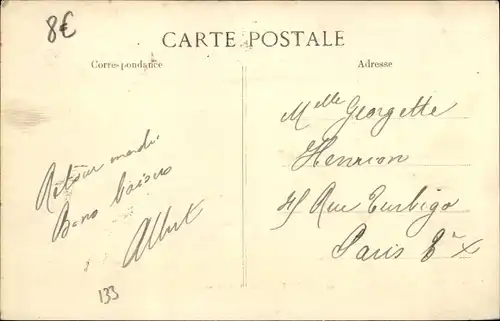 8€
CARTE POSTALE
Correspondance
Adresse
Retour mardi
Bons baisers
Albert
133
Melle Georgette
Henrion
Rue Turbigo
Paris